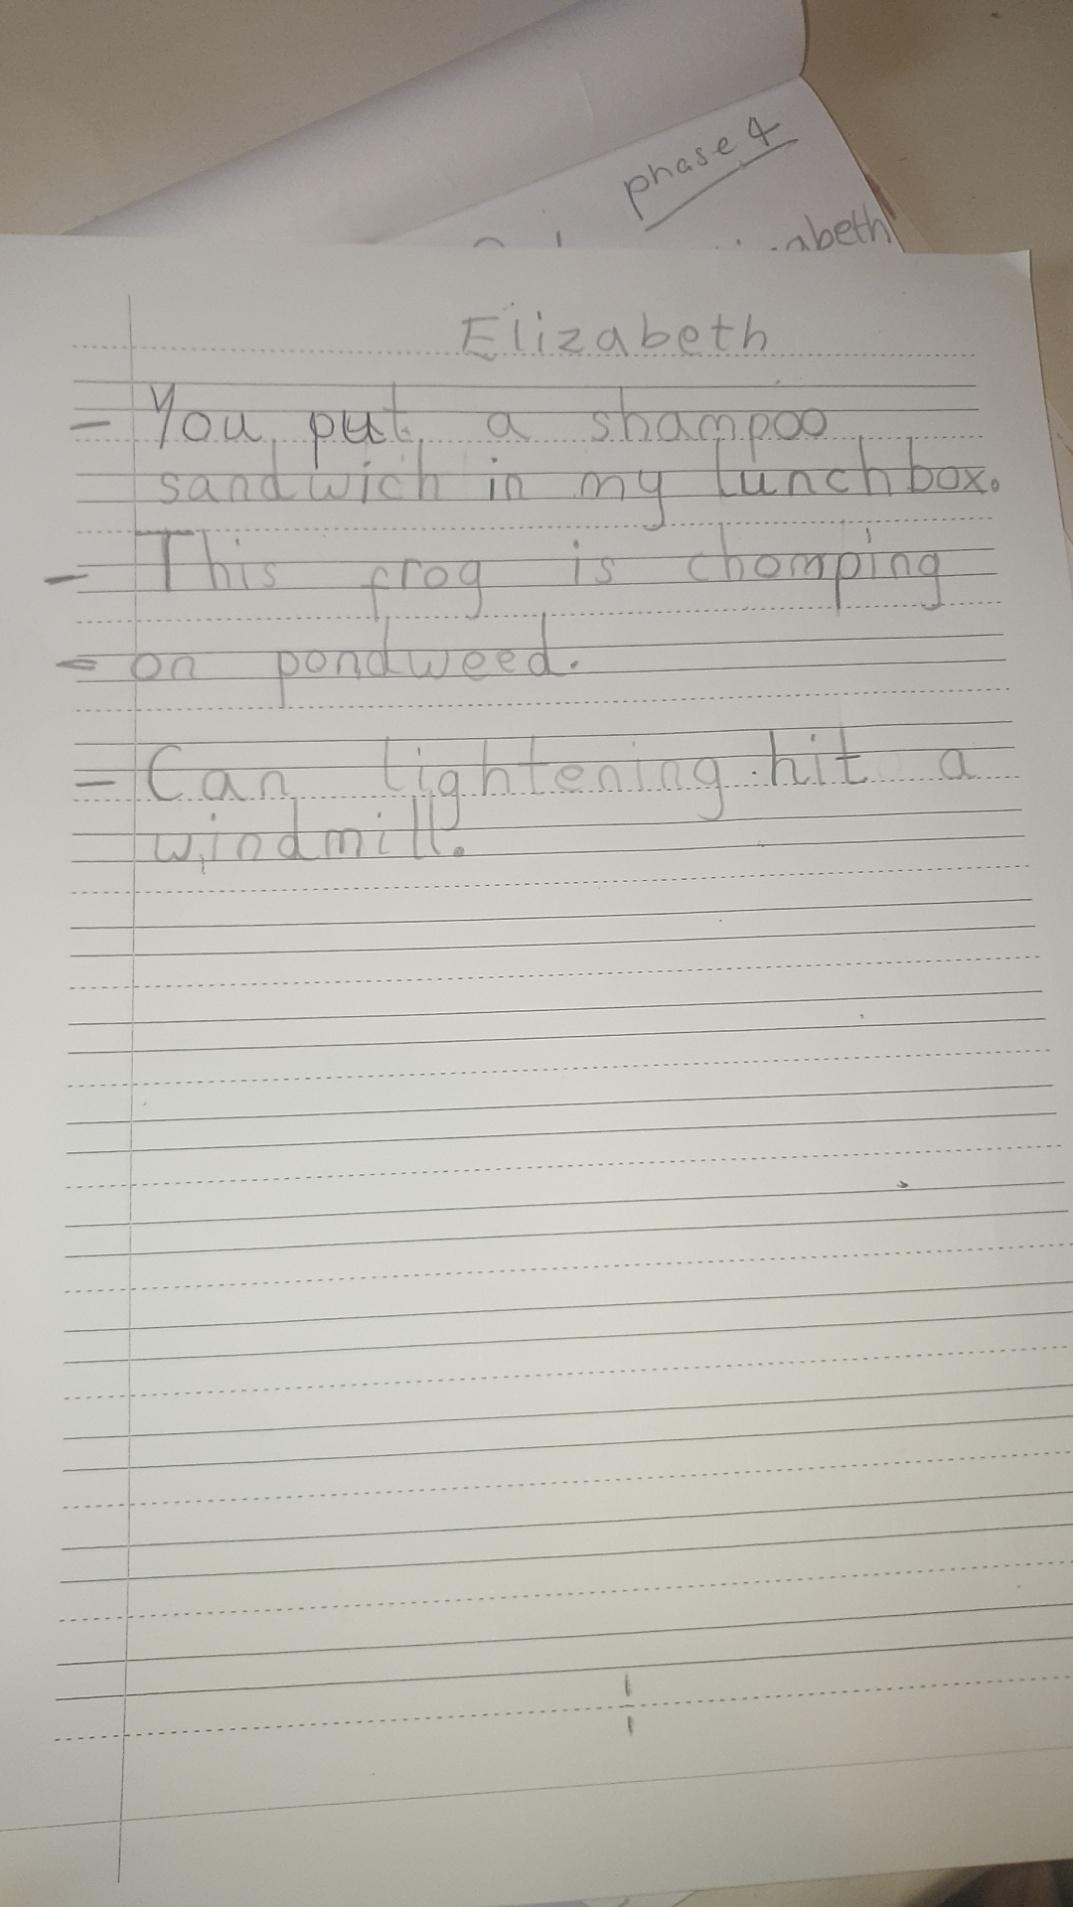 phase 4
abeth
Elizabeth
- You put a shampoo
sandwich in my lunchbox.
- This frog is chomping
- on pondweed.
- Can lightening hit a
windmill.